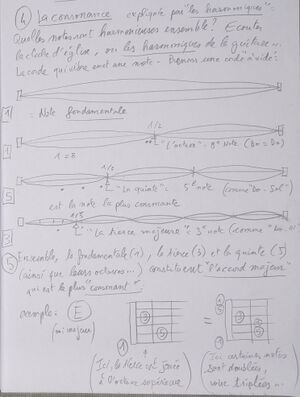 ④ La consonance expliquée par "les harmoniques".
Quelles notes vont harmonieuses ensemble? Ecoutez
la cloche d'église, ou les harmoniques de la guitare...
La corde qui vibre émet une note - Prenons une corde "à vide":
1 = Note fondamentale
1/2
1 "L'octave" = 8e Note (Do = Do)
1 = 8
1/3
5 "La quinte" = 5e note (comme "Do - Sol")
est la note la plus consonante
1/5
3 "La tierce majeure" = 3e note (comme "Do..
⑤ Ensemble, la fondamentale (1), la tierce (3) et la quinte (5)
(ainsi que leurs octaves...) constituent "l'accord majeur"
qui est le plus "consonant".
exemple: E
(mi majeur)
③
⑤
=
③
⑤
①
(Ici, la tierce est jouée
à l'octave supérieure)
(Ici certaines notes
sont doublées,
voire triplées...